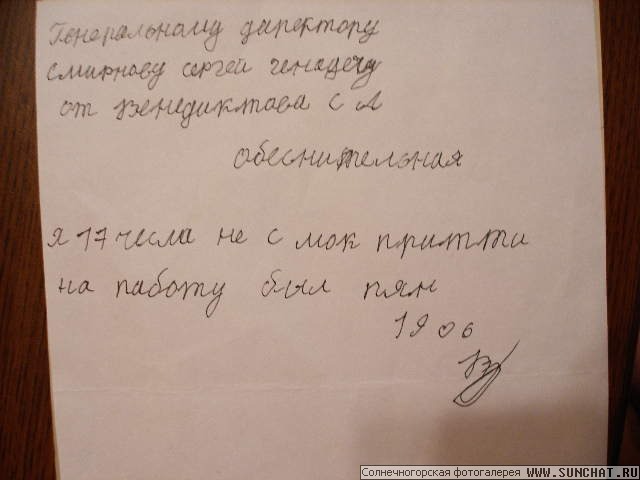 Генеральному директору
Смирнову сергей генадечу
от Венедиктова С А
обеснительная
Я 17 чесла не с мок притти
на работу был пян
19 06
Солнечногорская фотогалерея WWW.SUNCHAT.RU